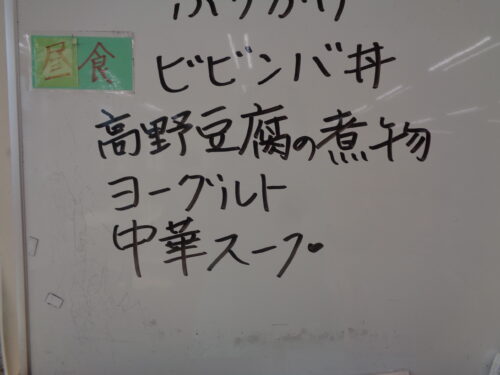 ふりかけ
昼食 ビビンバ丼
高野豆腐の煮物
ヨーグルト
中華スープ